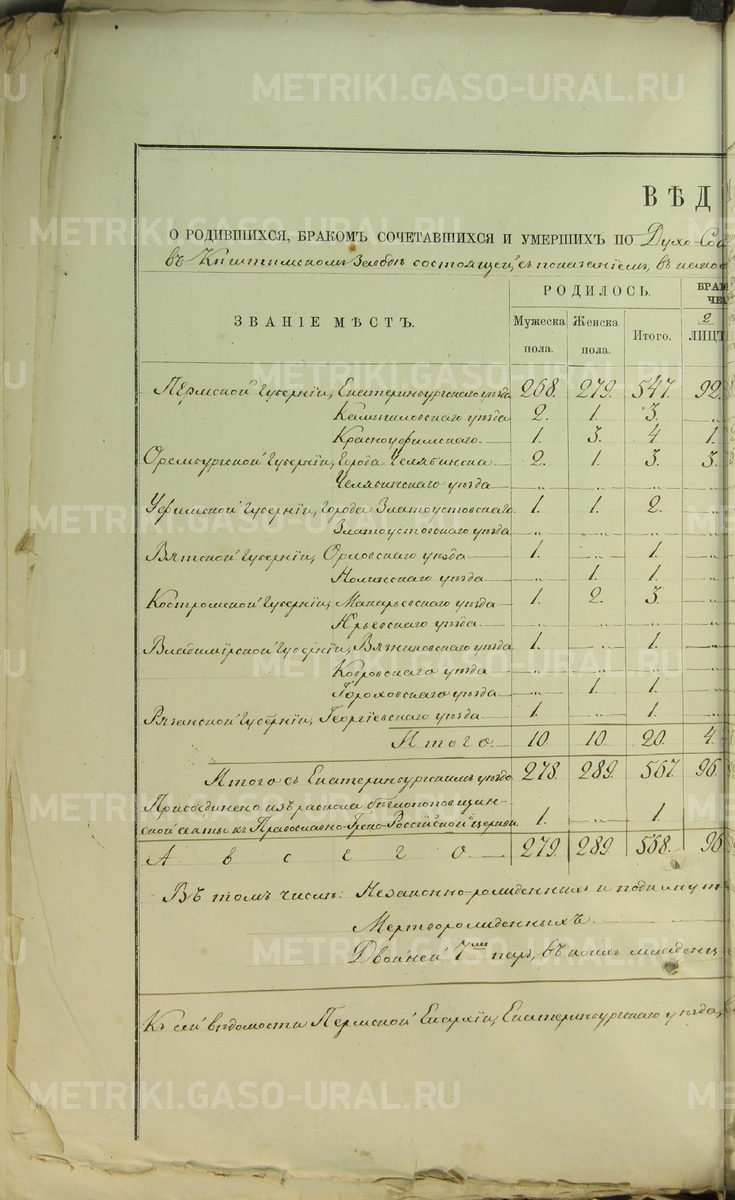 METRIKI.GASO-URAL.RU
ВѢД
О РОДИВШИХСЯ, БРАКОМЪ СОЧЕТАВШИХСЯ И УМЕРШИХЪ ПО Духо-Сош
въ Кыштымскомъ Заводѣ состоящей, съ показаніемъ, въ
ЗВАНІЕ МѢСТЪ. РОДИЛОСЬ. БРАК ЧЕТ
Мужеска пола. Женска пола. Итого. 2 ЛИЦЪ
Пермской Губерніи, Екатеринбургскаго уѣзда 268. 279. 547. 92.
Камышловскаго уѣзда 2. 1. 3. „
Красноуфимскаго 1. 3. 4 1.
Оренбургской Губерніи, Города Челябинска 2. 1. 3. 3.
Челябинскаго уѣзда „ „ „ „
Уфимской Губерніи, Города Златоустовскаго 1. 1. 2. „
Златоустовскаго уѣзда „ „ „ „
Вятской Губерніи, Орловскаго уѣзда 1. „ 1. „
Нолинскаго уѣзда „ 1. 1. „
Костромской Губерніи, Макарьевскаго уѣзда 1. 2. 3. „
Юрьевскаго уѣзда „ „ „ „
Владимірской Губерніи, Вязниковскаго уѣзда 1. „ 1. „
Ковровскаго уѣзда „ „ „ „
Гороховскаго уѣзда „ 1. 1. „
Рязанской Губерніи, Георгіевскаго уѣзда 1. „ 1. „
Итого 10. 10. 20. 4.
Итого съ Екатеринбургскимъ уѣздо 278. 289. 567. 96.
Присоединено изъ раскола бѣглопоповщин-
ской секты къ Православно-Греко-Россійской церкви 1. „ 1.
А всего 279. 289 568. 96
Въ томъ числѣ: Незаконно-рожденныхъ и подкинут
Мертворожденныхъ.
Двойней 7ми паръ, въ коихъ младенц
Къ сей вѣдомости Пермской Епархіи, Екатеринбургскаго уѣзда,